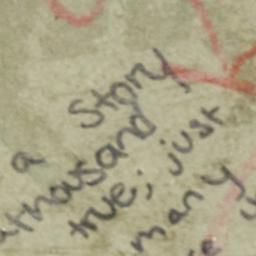 a Story,
thousand
true; just
many